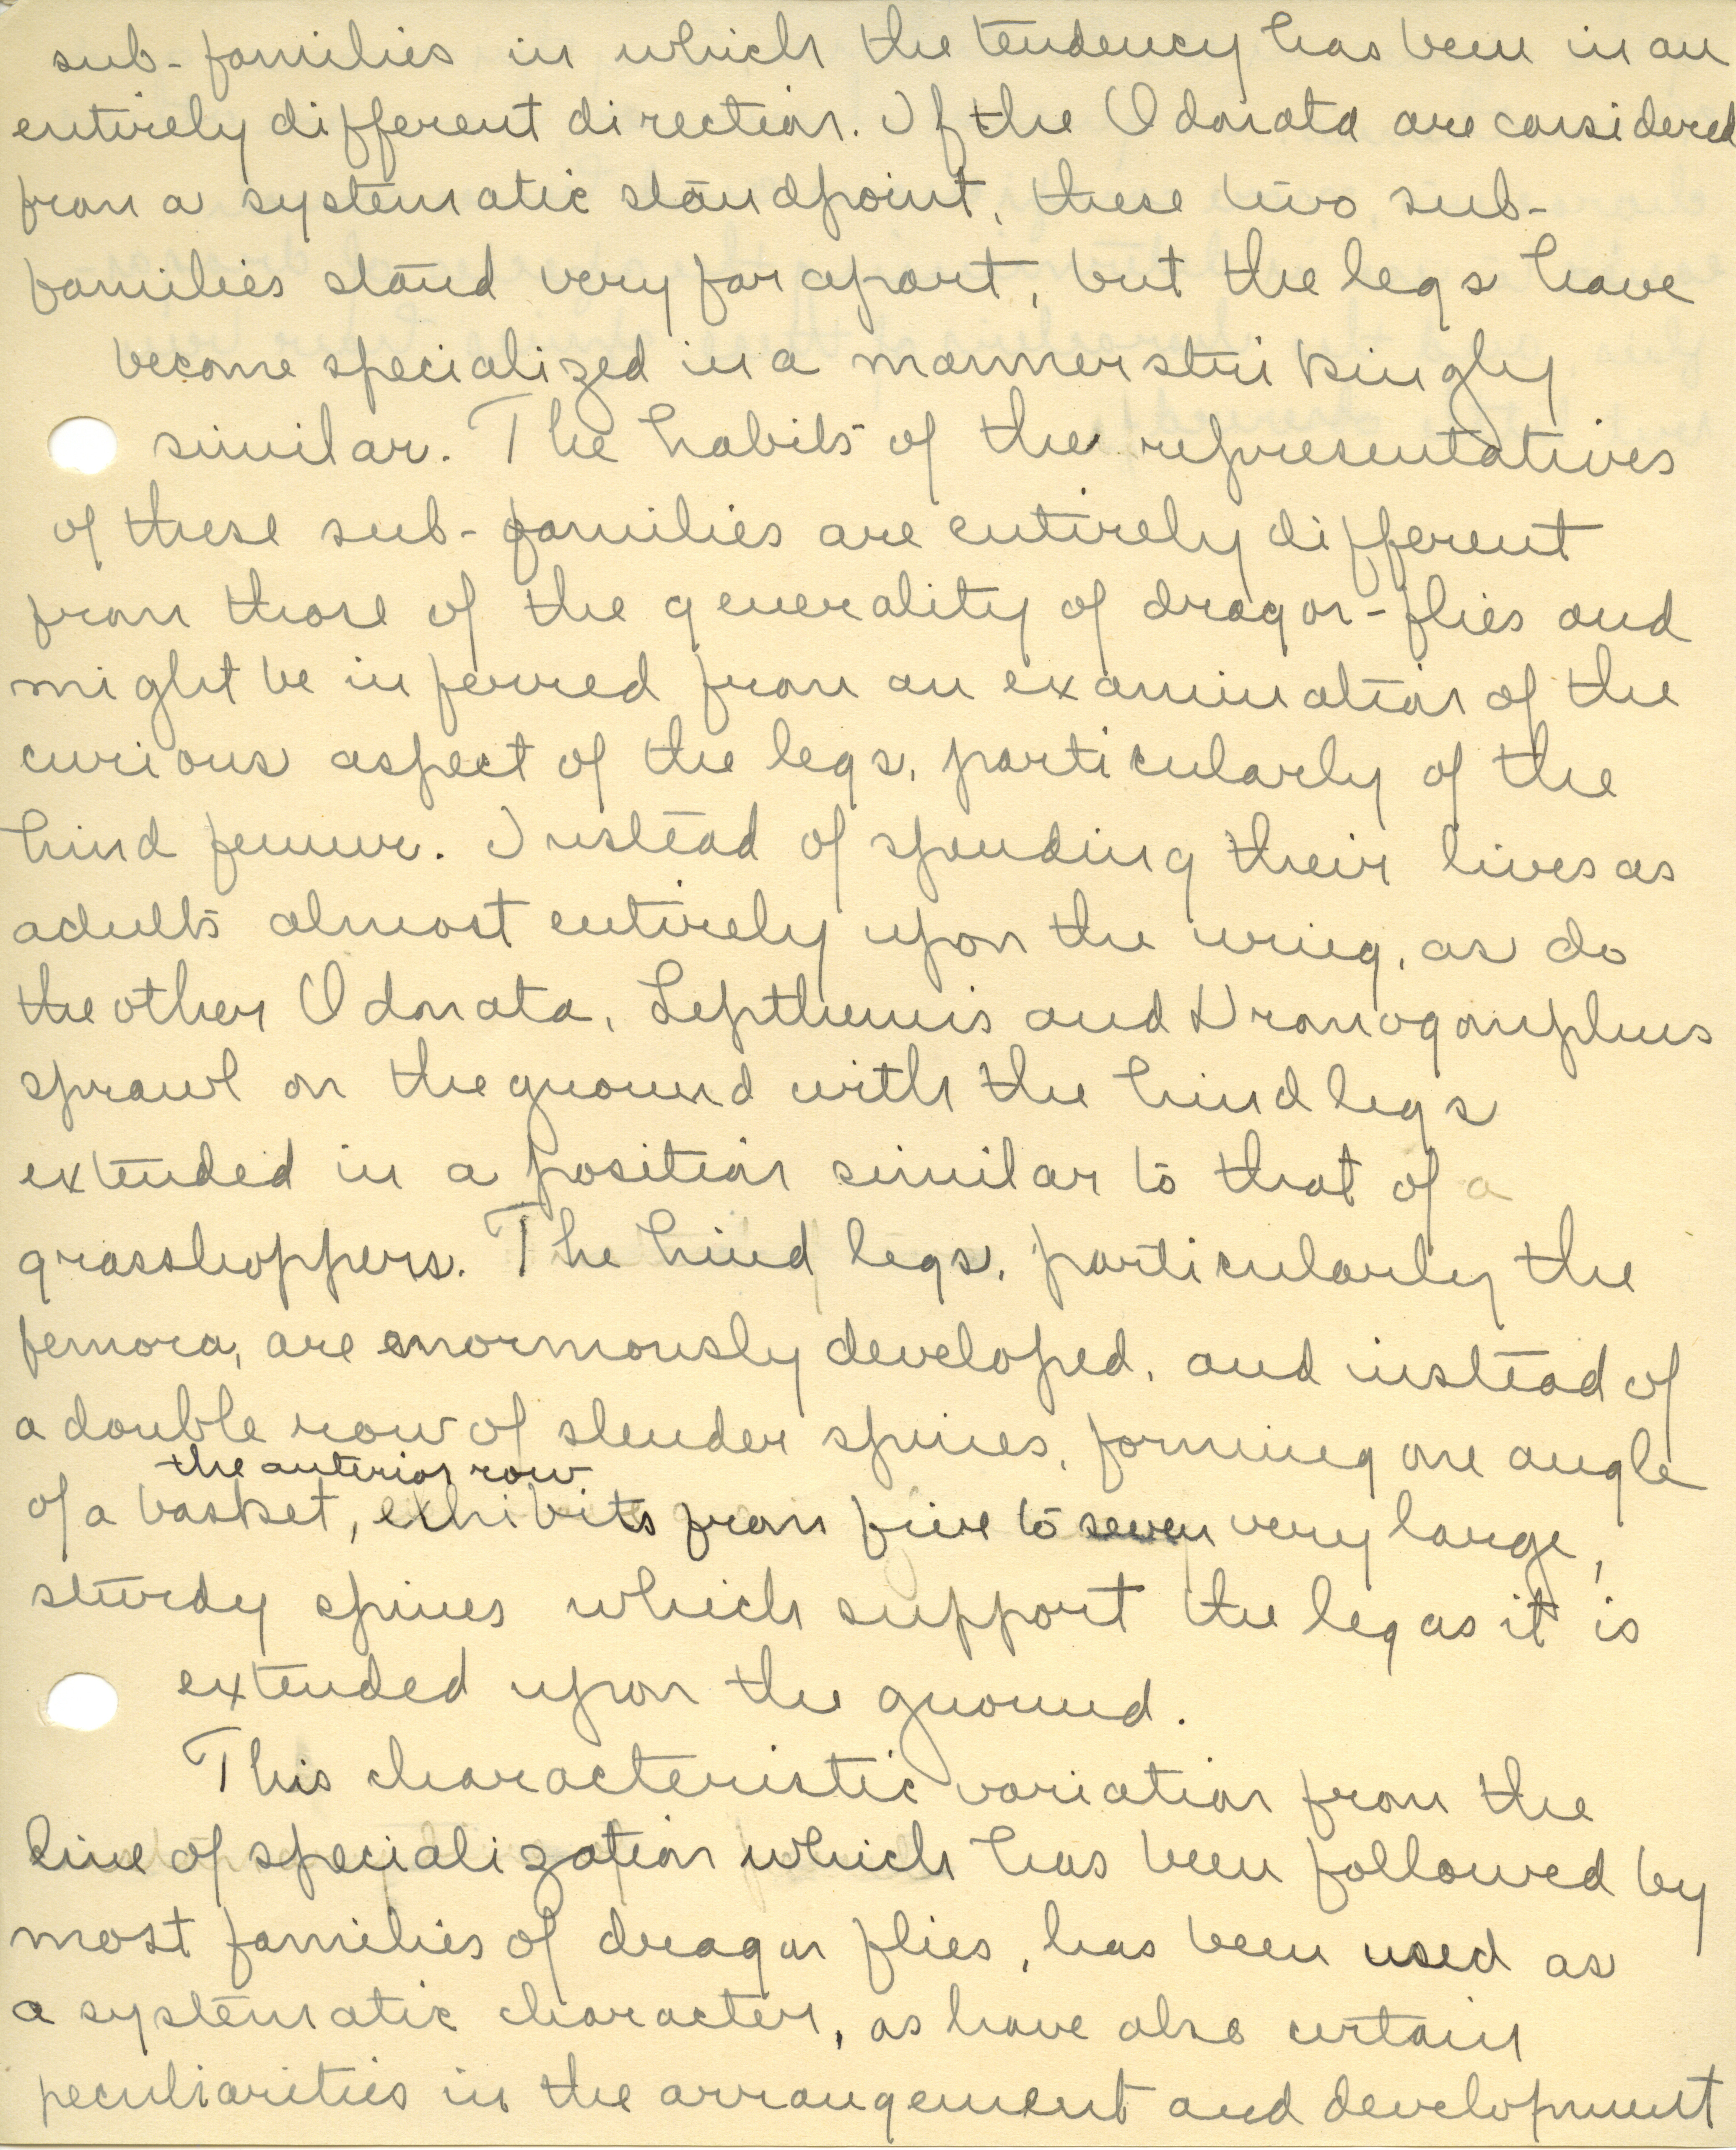 sub-families in which the tendency has been in an
entirely different direction. If the Odonata are considered
from a systematic standpoint, these two sub-
families stand very far apart, but the legs have
become specialized in a manner strikingly
similar. The habits of the representatives
of these sub-families are entirely different
from those of the generality of dragon-flies and
might be inferred from an examination of the
curious aspect of the legs, particularly of the
hind femur. Instead of spending their lives as
adults almost entirely upon the wing, as do
the other Odonata, Lepthemis and Dromogomphus
sprawl on the ground with the hind legs
extended in a position similar to that of a
grasshoppers. The hind legs, particularly the
femora, are enormously developed, and instead of
a double row of slender spines, forming one angle
the anterior row
of a basket, exhibits from five to seven very large,
sturdy spines which support the leg as it is
extended upon the ground.
This characteristic variation from the
line of specialization which has been followed by
most families of dragon flies, has been used as
a systematic character, as have also certain
peculiarities in the arrangement and development